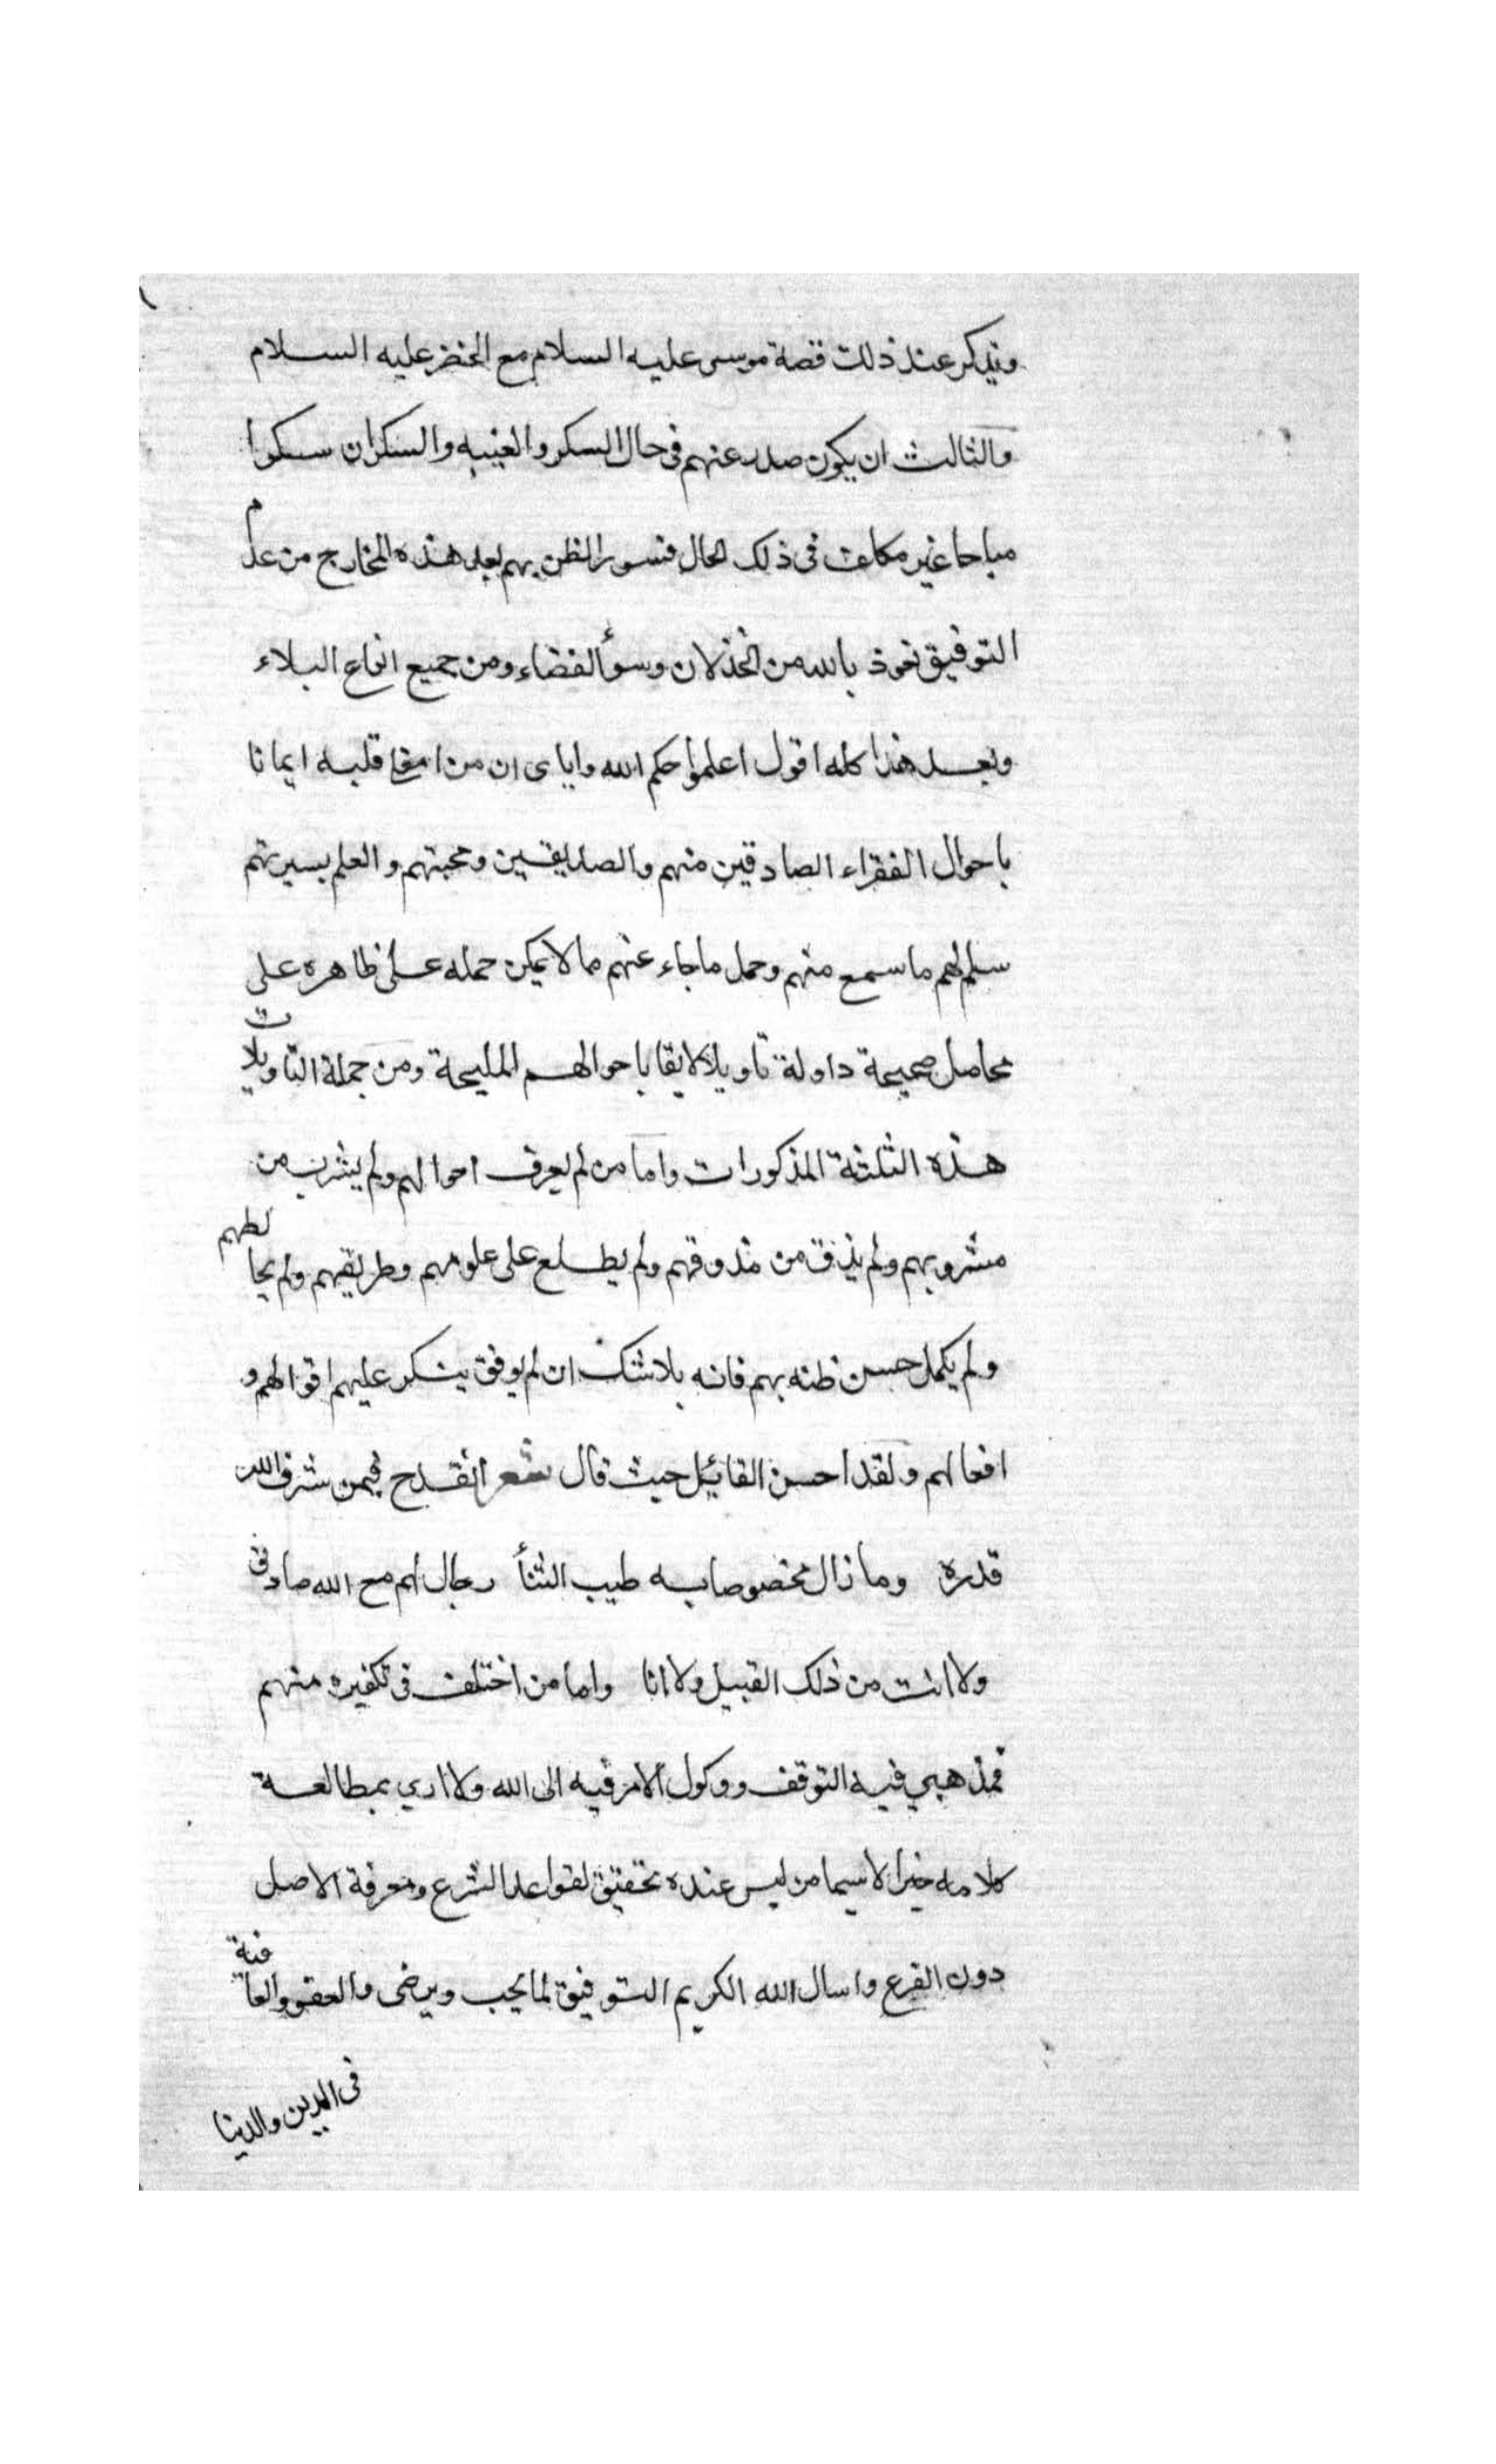 ويذكر عند ذلك قصة موسى عليه السلام مع الخضر عليه السلام
والثالث ان يكون صدر عنهم فى حال السكر والغيبه والسكران سكرا
مباحا غير مكلف فى ذلك الحال فسوء الظن بهم بعد هذه المخارج من عدم
التوفيق نعوذ بالله من الخذلان وسوء القضاء ومن جميع انواع البلاء
وبعد هذا كله اقول اعلموا حكم الله واياى ان من قلبه ايمانا
باحوال الفقراء الصادقين منهم والصديقين ومحبتهم والعلم بسيرتهم
سلم لهم ما سمع منهم وحمل ما جاء عنهم مما لا يمكن حمله على ظاهره على
محاصل صحيحة داولة تاويلا لايقا باحوالهم المليحة ومن جملة التاويلات
هذه الثلثة المذكورات واما من لم يعرف احوالهم ولم يشرب من
مشروبهم ولم يذق من مذوقهم ولم يطلع على علومهم وطريقهم ولم يخالطهم
ولم يكمل حسن ظنه بهم فانه بلا شك ان لم يوفق ينكر عليهم اقوالهم و
افعالهم ولقد احسن القائيل حيث قال شعر اتقدح فيمن شرف الله
قدره وما زال مخصوصا به طيب الثنأ رجال لهم مع الله صادق
ولا انت من ذلك القبيل ولا انا واما من اختلف فى تكفيره منهم
فمذهبي فيه التوقف ووكول الامر فيه الى الله ولا ارى بمطالعة
كلامه خيرا لاسيما من ليس عنده تحقيق لقواعد الشرع ومعرفة الاصل
دون الفرع واسال الله الكريم التوفيق لما يحب ويرضى والعفو والعافية
فى الدين والدينا